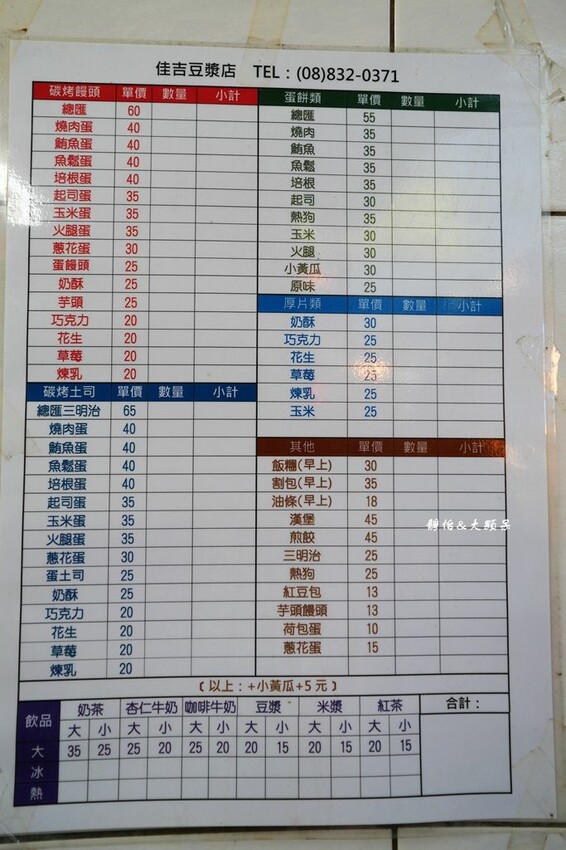 佳吉豆漿店 TEL：(08)832-0371
碳烤饅頭 單價 數量 小計
總匯 60
燒肉蛋 40
鮪魚蛋 40
魚鬆蛋 40
培根蛋 40
起司蛋 35
玉米蛋 35
火腿蛋 35
蔥花蛋 30
蛋饅頭 25
奶酥 25
芋頭 25
巧克力 20
花生 20
草莓 20
煉乳 20
碳烤土司 單價 數量 小計
總匯三明治 65
燒肉蛋 40
鮪魚蛋 40
魚鬆蛋 40
培根蛋 40
起司蛋 35
玉米蛋 35
火腿蛋 35
蔥花蛋 30
蛋土司 25
奶酥 25
巧克力 20
花生 20
草莓 20
煉乳 20
蛋餅類 單價 數量 小計
總匯 55
燒肉 35
鮪魚 35
魚鬆 35
培根 35
起司 30
熱狗 35
玉米 30
火腿 30
小黃瓜 30
原味 25
厚片類 單價 數量 小計
奶酥 30
巧克力 25
花生 25
草莓 25
煉乳 25
玉米 25
其他 單價 數量 小計
飯糰(早上) 30
割包(早上) 35
油條(早上) 18
漢堡 45
煎餃 45
三明治 25
熱狗 25
紅豆包 13
芋頭饅頭 13
荷包蛋 10
蔥花蛋 15
(以上：+小黃瓜+5元)
飲品 奶茶 杏仁牛奶 咖啡牛奶 豆漿 米漿 紅茶 合計：
大 小 大 小 大 小 大 小 大 小 大 小
大 35 25 25 20 25 20 20 15 20 15 20 15
冰
熱